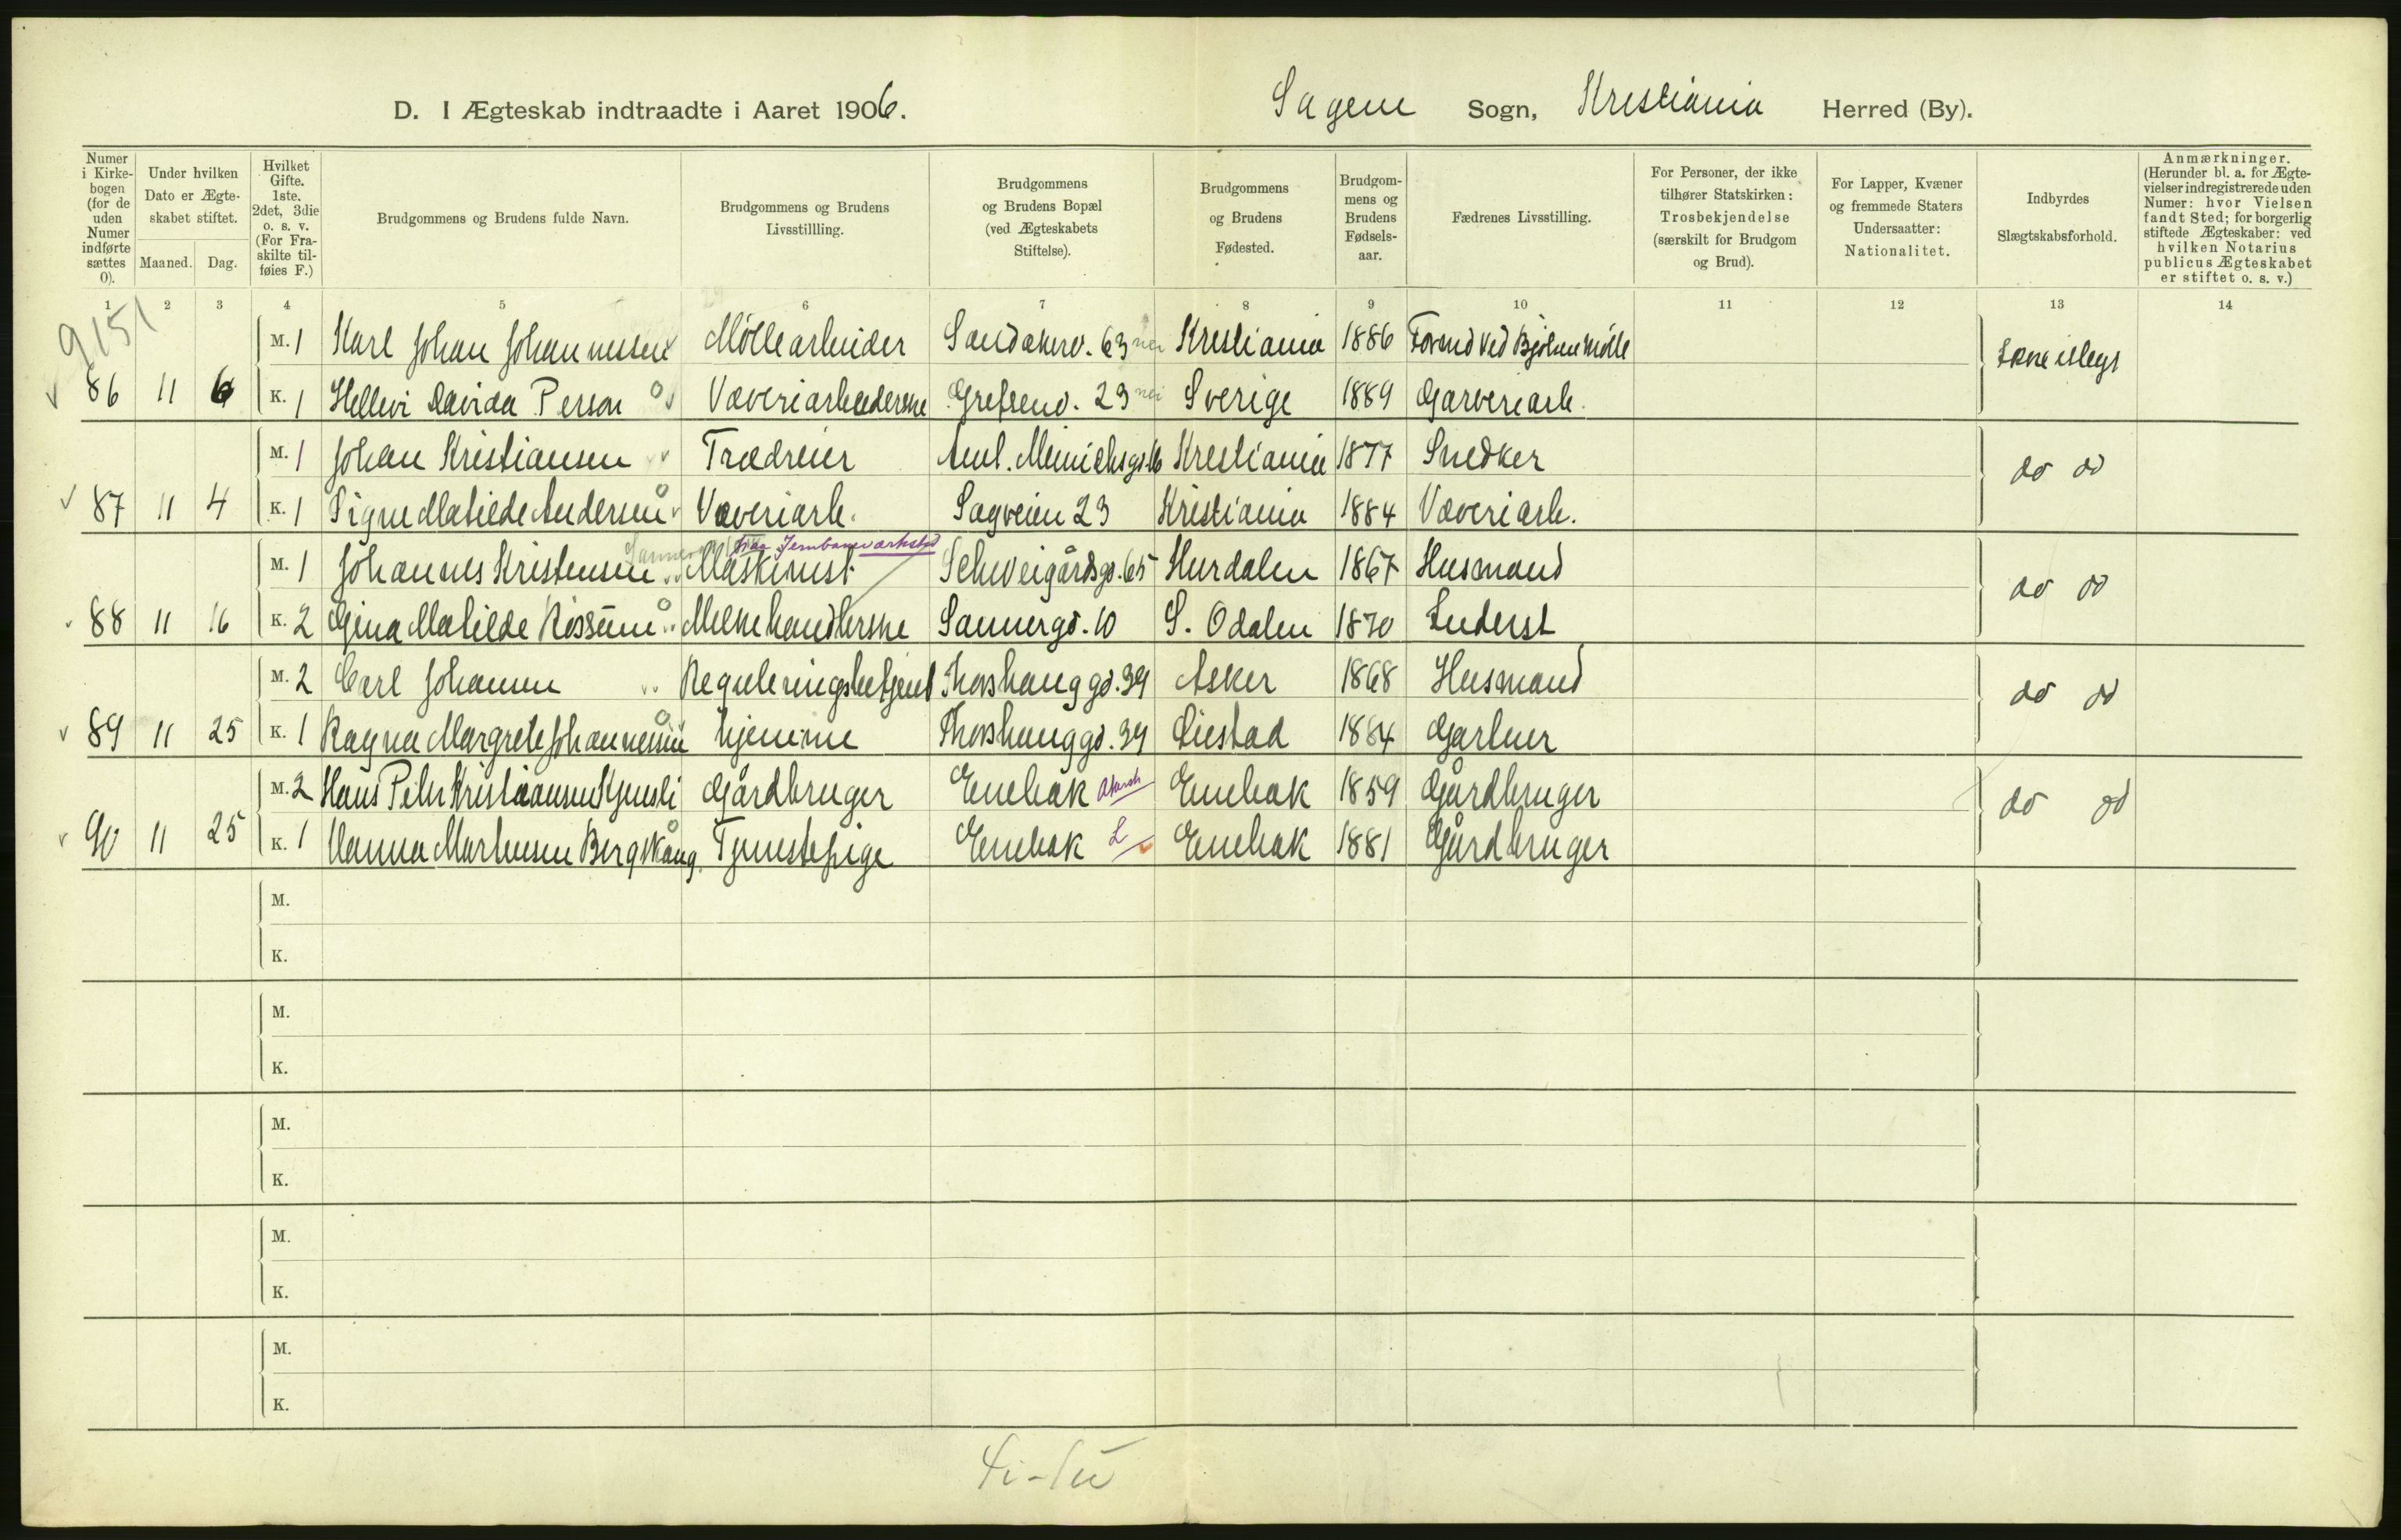 D. I Ægteskab indtraadte i Aaret 1906. Sagene Sogn, Kristiania Herred (By).
Numer i Kirkebogen (for de uden Numer indførte sættes 0).
Under hvilken Dato er Ægteskabet stiftet.
Maaned. Dag.
Hvilket Gifte. 1ste. 2det, 3die o. s. v. (For Fraskilte tilføies F.)
Brudgommens og Brudens fulde Navn.
Brudgommens og Brudens Livsstillling.
Brudgommens og Brudens Bopæl (ved Ægteskabets Stiftelse).
Brudgommens og Brudens Fødested.
Brudgommens og Brudens Fødselsaar.
Fædrenes Livsstilling.
For Personer, der ikke tilhører Statskirken: Trosbekjendelse (særskilt for Brudgom og Brud).
For Lapper, Kvæner og fremmede Staters Undersaatter: Nationalitet.
Indbyrdes Slægtskabsforhold.
Anmærkninger. (Herunder bl. a. for Ægtevielser indregistrerede uden Numer: hvor Vielsen fandt Sted; for borgerlig stiftede Ægteskaber: ved hvilken Notarius publicus Ægteskabet er stiftet o. s. v.)
1 2 3 4 5 6 7 8 9 10 11 12 13 14
9151
M. 1 Karl Johan Johannesen Møllearbeider Sandakerv. 63 nei Kristiania 1886 Formd ved Bjølsen Mølle
86 11 6 K. 1 Hellevi Davida Person Væveriarbeiderske Grefsenv. 23 nei Sverige 1889 Garveriarb. Ikke islegt
M. 1 Johan Kristiansen Trædreier Aml. Meinichsgt 16 Kristiania 1877 Snedker
87 11 4 K. 1 Signe Matilde Andersen Væveriarb. Sagveien 23 Kristiania 1884 Væveriarb. do do
Jernbaneværksted
M. 1 Johannes Kristensen Maskinist Schweigårdsgd. 65 Hurdalen 1867 Husmand
88 11 16 K. 2 Gina Matilde Kossum Melkehandlerske Sannergd. 10 S. Odalen 1870 Inderst do do
M. 2 Carl Johansen Reguleringsbetjent Thorshauggd. 39 Asker 1868 Husmand
89 11 25 K. 1 Ragna Margrete Johannesen hjemme Thorshauggd. 39 Liestad 1884 Gartner do do
M. 2 Hans Peter Kristiansen Kjensli Gårdbruger Enebak Akersh Enebak 1859 Gårdbruger
90 11 25 K. 1 Hanna Martinsen Bergskaug Tjenestepige Enebak L Enebak 1881 Gårdbruger do do
M.
K.
M.
K.
M.
K.
M.
K.
M.
K.